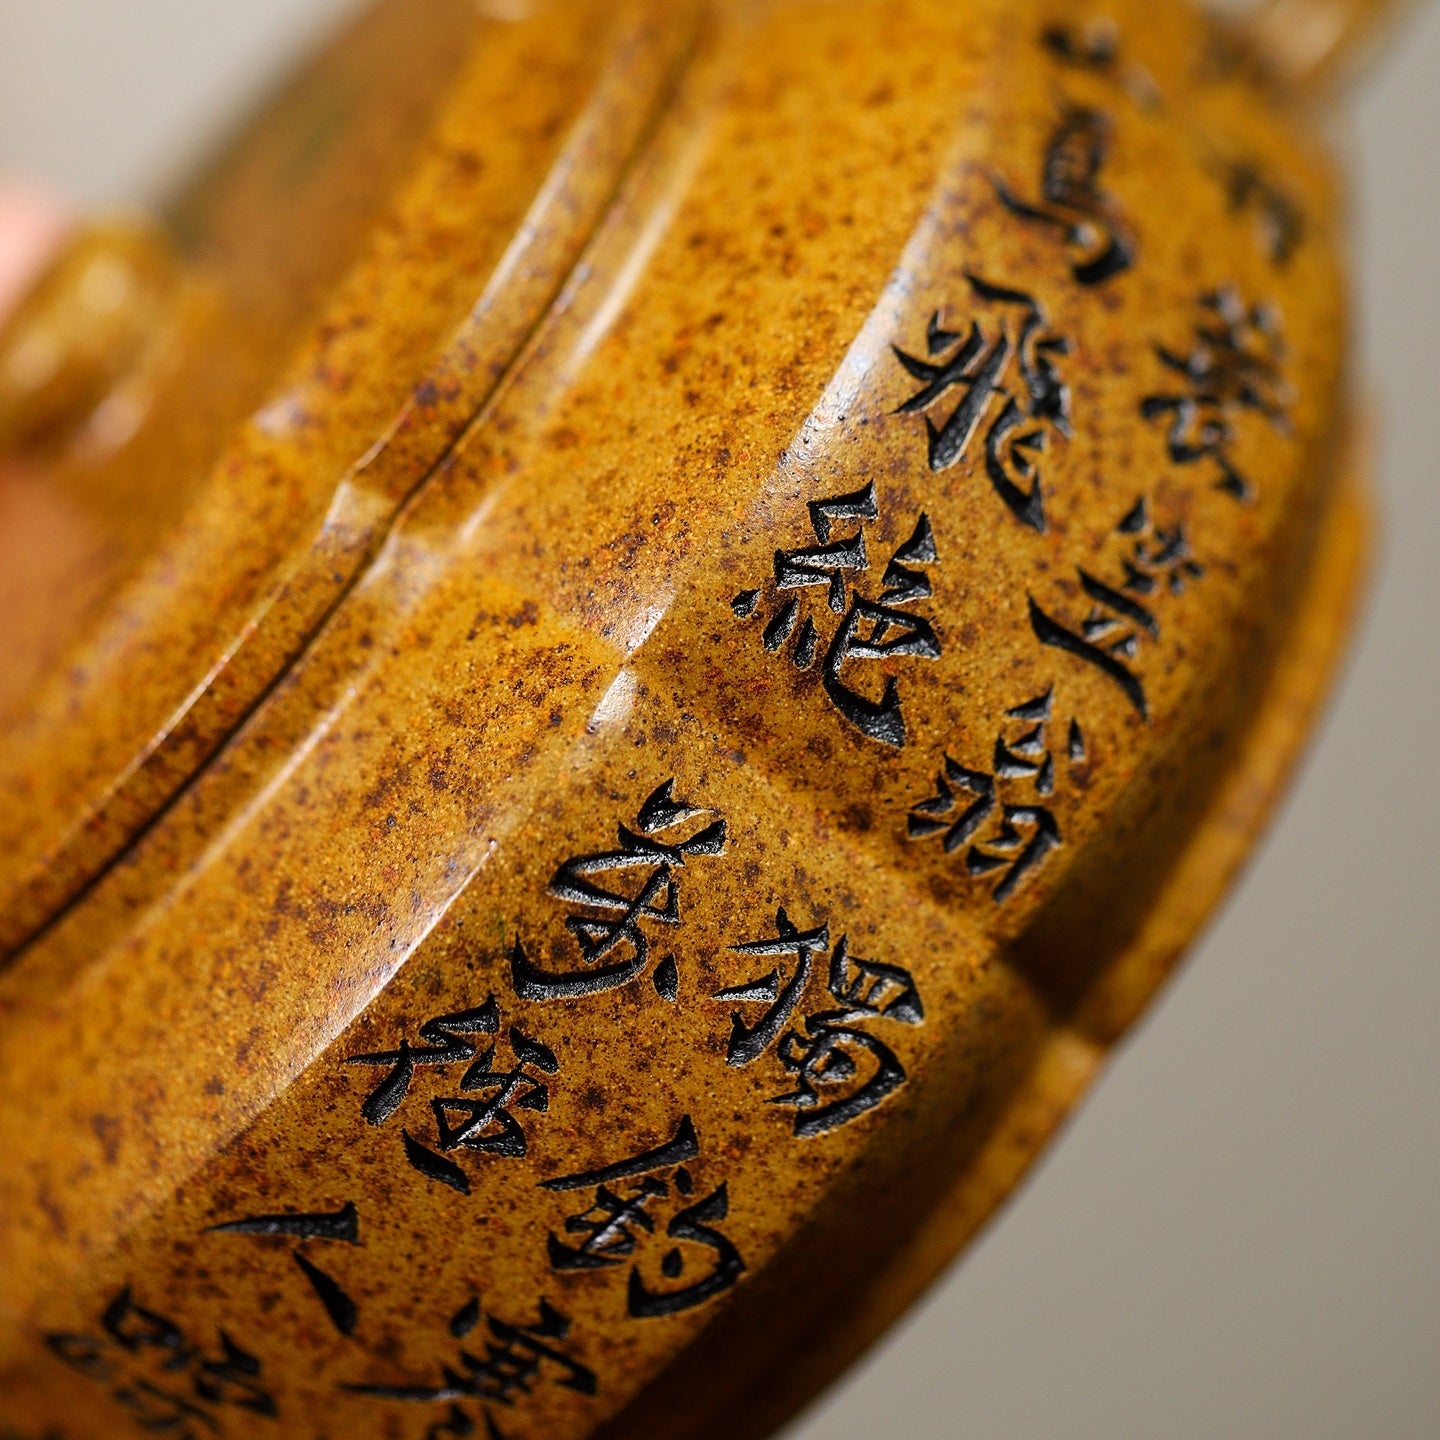 山鳥飛絕萬徑人蹤
舟蓑笠翁獨釣寒